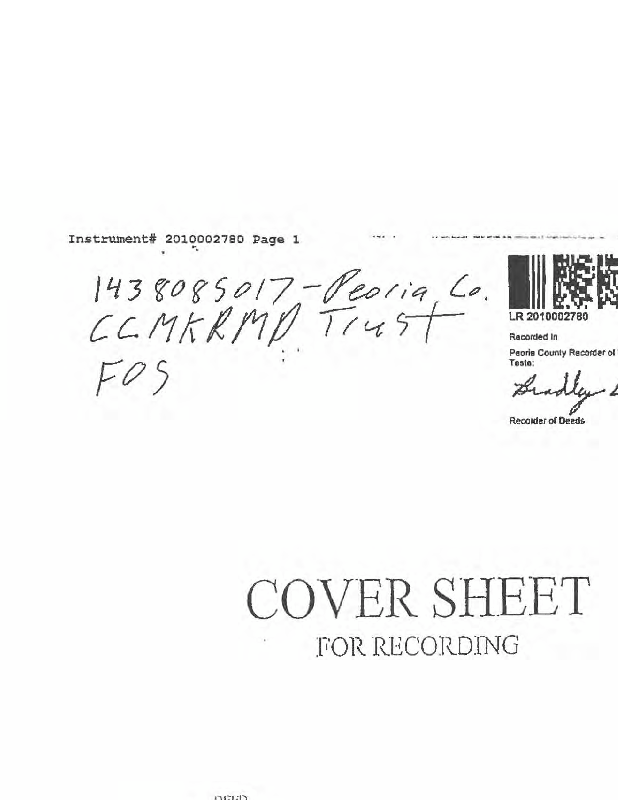 Instrument# 2010002780 Page 1
1438085017-Peoria Co.
CCMKRMD Trust
FOS
LR 2010002780
Recorded in
Peoria County Recorder of
Teste:
Bradley
Recorder of Deeds
COVER SHEET
FOR RECORDING